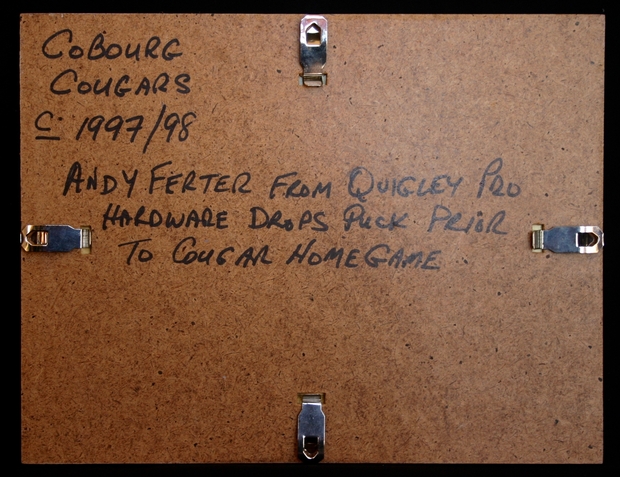 COBOURG
COUGARS
C: 1997/98
ANDY FERTER FROM QUIGLEY PRO
HARDWARE DROPS PUCK PRIOR
TO COUGAR HOME GAME